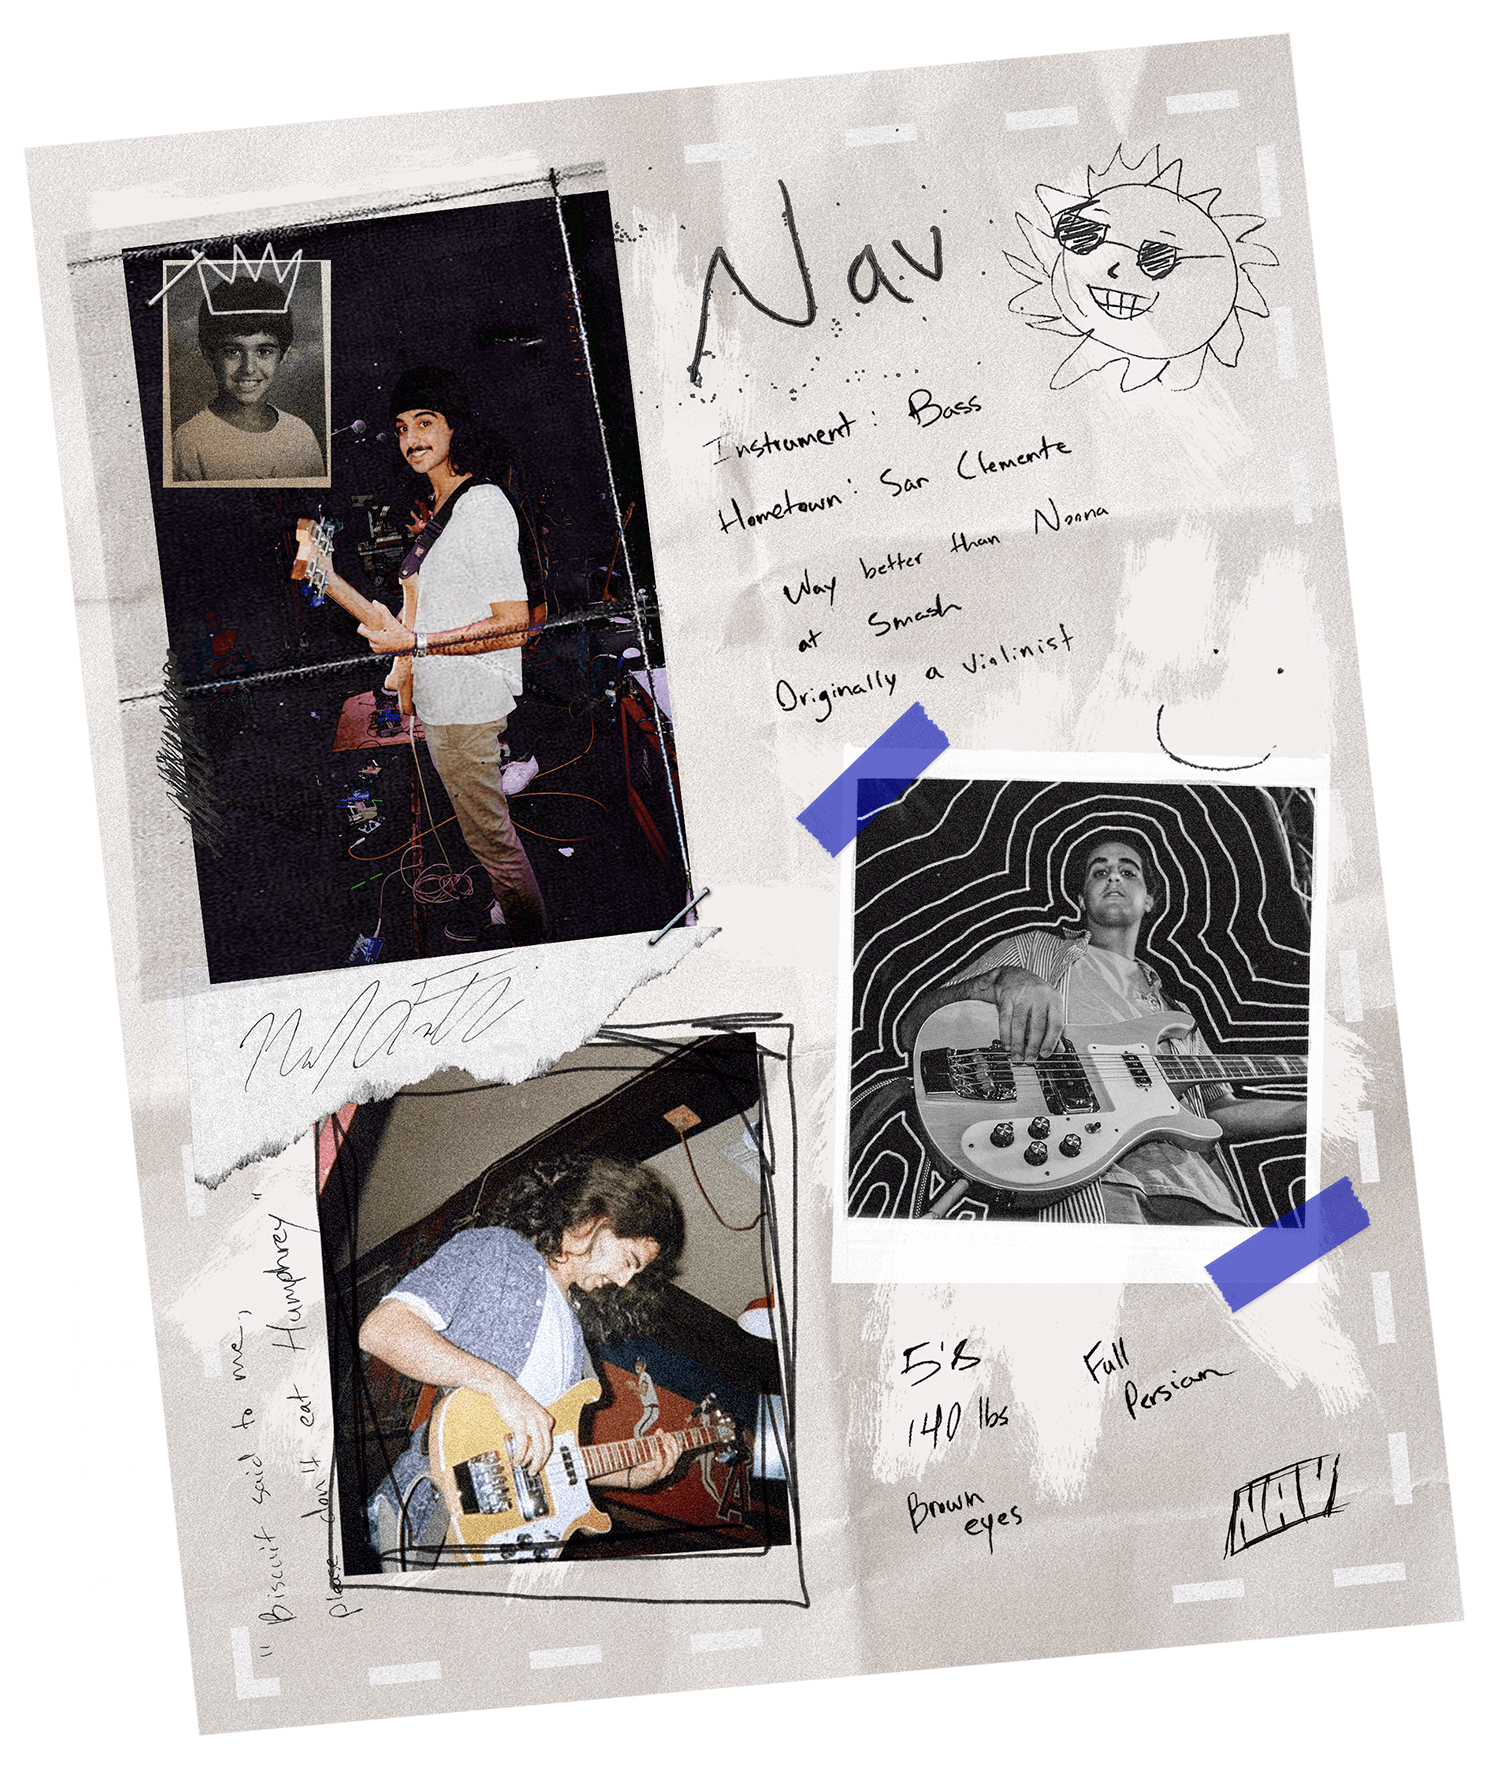 Nav
Instrument: Bass
Hometown: San Clemente
Way better than Noona
at Smash
Originally a violinist
"Biscuit said to me,
please don't eat Humphrey"
5'8
140 lbs
Brown
eyes
Full
Persian
NAV
A